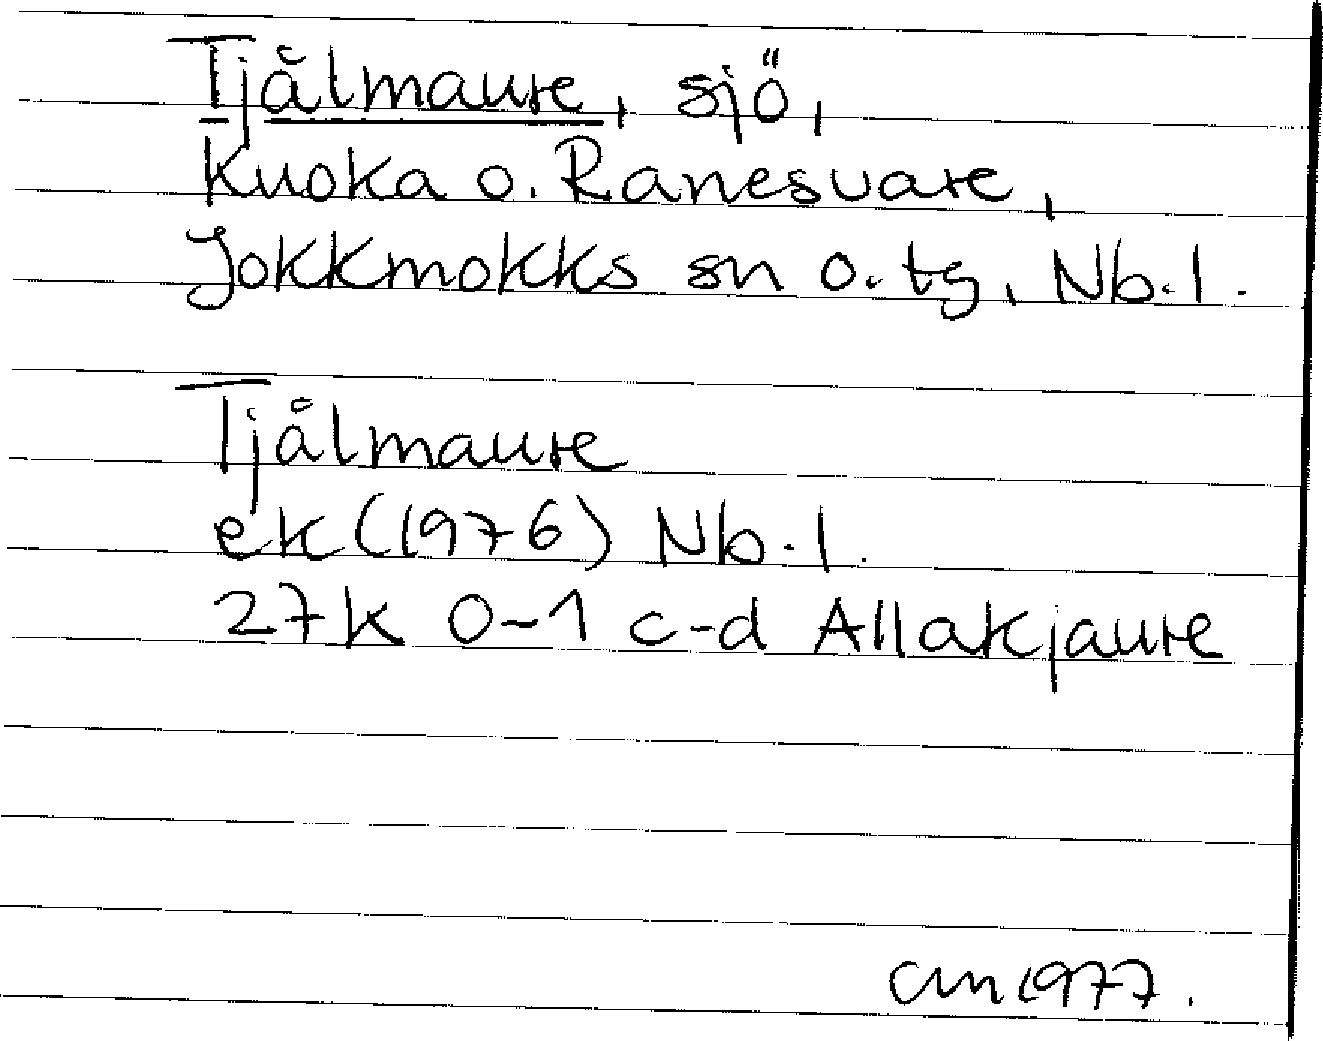 Tjålmaure, sjö,
Kuoka o. Ranesvare,
Jokkmokks sn o. tg, Nb. l.
Tjålmaure
ek (1976) Nb. l.
27K 0-1 c-d Allakjaure
CM 1977.